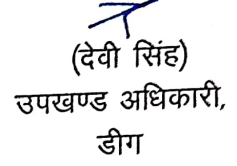 (देवी सिंह)
उपखण्ड अधिकारी,
डीग